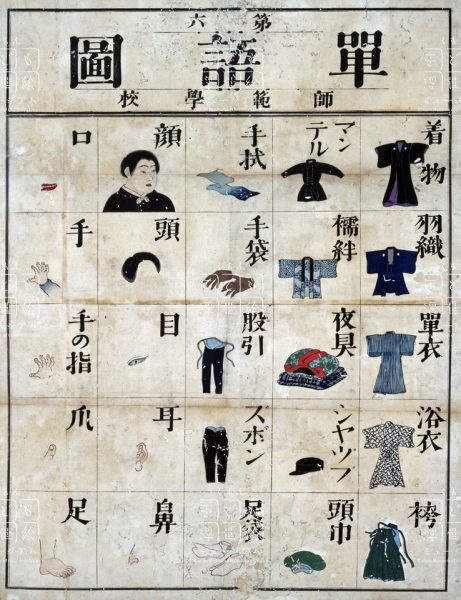 第六
單語圖
師範學校
着物
羽織
單衣
浴衣
袴
マンテル
襦袢
夜具
シヤツプ
頭巾
手拭
手袋
股引
ズボン
足袋
顔
頭
目
耳
鼻
口
手
手の指
爪
足